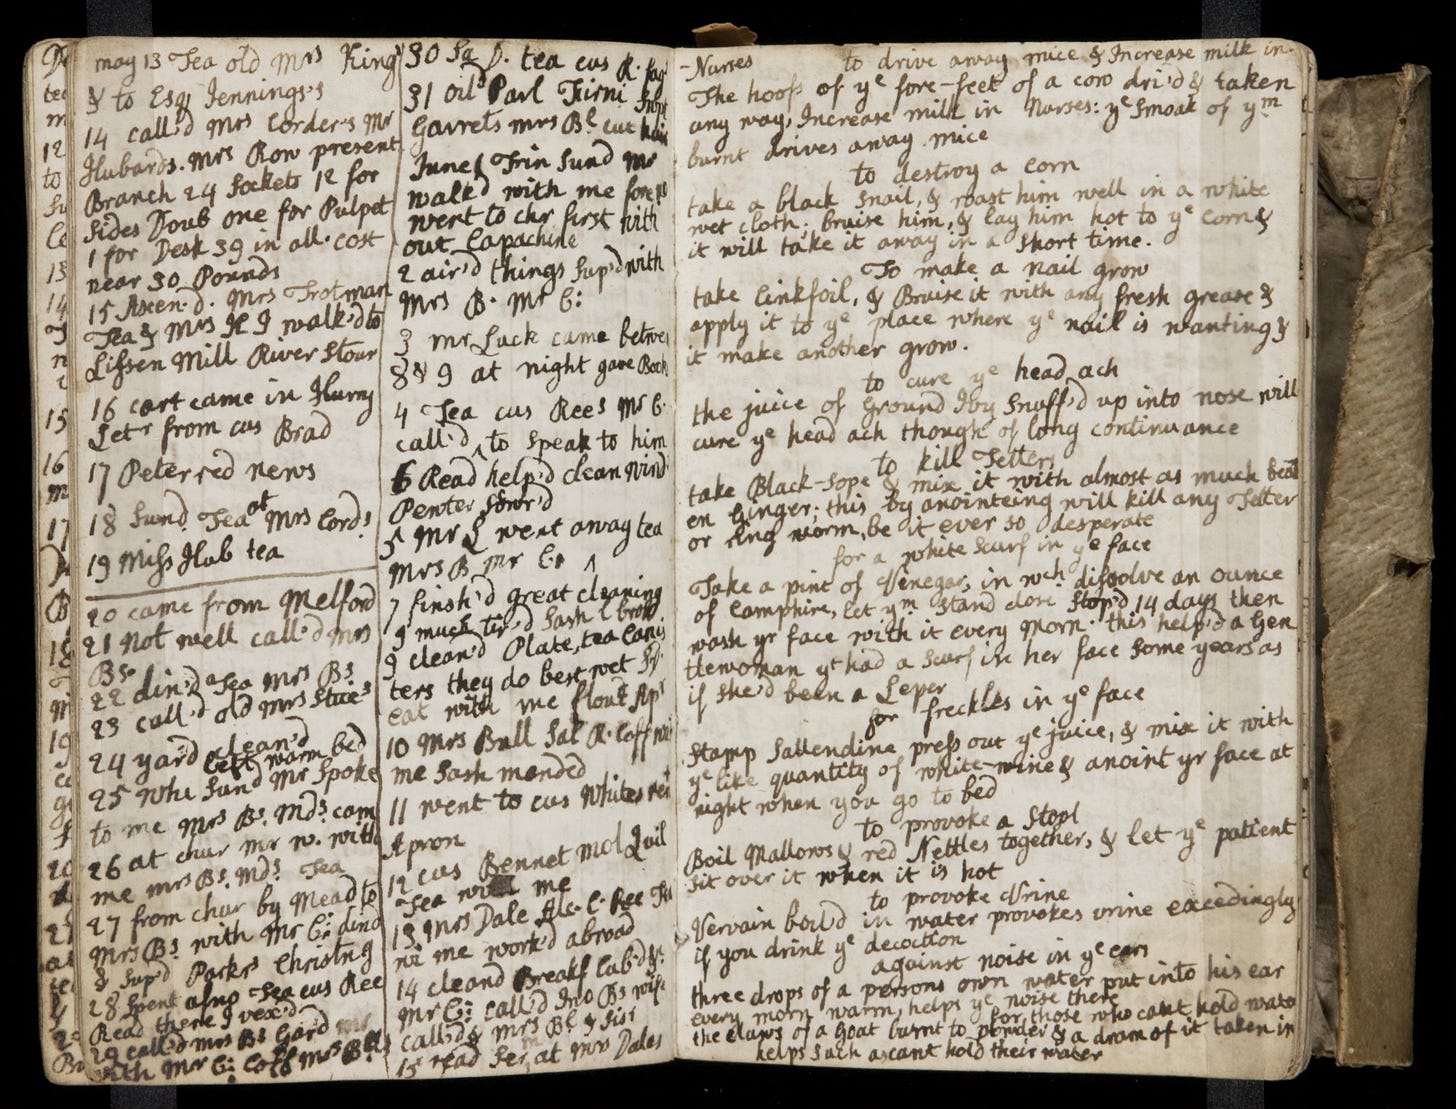 may 13 Tea old Mrs King
& to Esqr Jennings's
14 call'd Mrs Corders Mr
Hubards. Mrs Row present
Branch 24 Sockets 12 for
sides Doub one for Pulpet
1 for Desk 39 in all. cost
near 30 Pounds
15 Ascen. d. Mrs Trotman
Tea & Mrs H I walk'd to
Lissen Mill River Stour
16 cart came in Hurry
Letr from cus Brad
17 Peter red news
18 Sund Tea at Mrs Cords
19 Miss Hub tea
20 came from Melford
21 Not well call'd mrs
Bs.
22 din'd Tea Mrs Bs
23 call'd old mrs
24 yard clean'd
left warm bed
25 Whi Sund Mr Spoke
to me Mrs Bs. Mds. cam
26 at chur mr w. with
me mrs Bs. Mds. Tea
27 from chur by Mead to
Mrs Bs with Mr C: dind
& Sup'd Parkrs Christng
28 Spent Tea cus Ree
Read there I vex'd
29 call'd mrs Bs Gard
with Mr C:
30 tea cus R.
31 oil'd Parl
Garrets mrs Bl cut hair
June 1 Trin Sund Mr
walk'd with me
went to chr first with
out Capachine
2 air'd things Sup'd with
Mrs B. Mr C:
3 mr Luck came betwe
8 & 9 at night gave
4 Tea cus Rees Mr C.
call'd, to speak to him
6 Read help'd clean wind
Pewter Scowr'd
5 Mr L went away tea
Mrs B Mr C:
7 finsh'd great cleaning
9 much tir'd Sash
9 clean'd Plate, tea canis
ters they do best wet
eat with me
10 Mrs Bull Sal R. Coff wi
me Sash mended
11 went to cus Whites
Apron
12 cus Bennet mol Quil
Tea with me
13 mrs Dale R. C. Ree
wi me work'd abroad
14 cleand Breakf Cub'd &
Mr C: call'd Ino Bs wife
call'd & mrs Bl & Sis
15 read Serm at Mrs Dales
-Nurses to drive away mice & Increase milk in
The hoofs of ye fore-feet of a cow dri'd & taken
any way, Increase milk in Nurses: ye Smoak of ym
burnt drives away mice
to destroy a corn
take a black Snail, & roast him well in a white
wet cloth; bruise him, & lay him hot to ye corn &
it will take it away in a short time.
To make a nail grow
take Cinkfoil, & Bruise it with any fresh grease &
apply it to ye place where ye nail is wanting &
it make another grow.
to cure ye head ach
the juice of Ground Ivy Snuff'd up into nose will
cure ye head ach though of long continuance
to kill Tetters
take Black-Sope & mix it with almost as much beat
en Ginger; this by anointeing will kill any Tetter
or ring worm, be it ever so desperate
for a white Scurf in ye face
Take a pint of Venegar, in wch dissolve an ounce
of Camphire, let ym stand close stop'd 14 days then
wash yr face with it every Morn. this help'd a Gen
tlewoman yt had a Scurf in her face Some years as
if she'd been a Leper
for freckles in ye face
Stamp Sallendine press out ye juice, & mix it with
ye like quantity of white-wine & anoint yr face at
night when you go to bed
to provoke a Stool
Boil Mallows & red Nettles together, & let ye patient
Sit over it when it is hot
to provoke Urine
Vervain boil'd in water provokes urine exceedingly
if you drink ye decoction
against noise in ye ears
three drops of a persons own water put into his ear
every morn warm, helps ye noise there
for those who cant hold water
the claws of a Goat burnt to powder & a dram of it taken in
helps such as cant hold their water